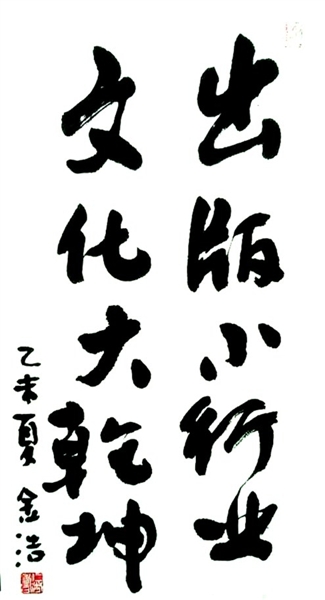 出版小行业
文化大乾坤
乙未夏金浩